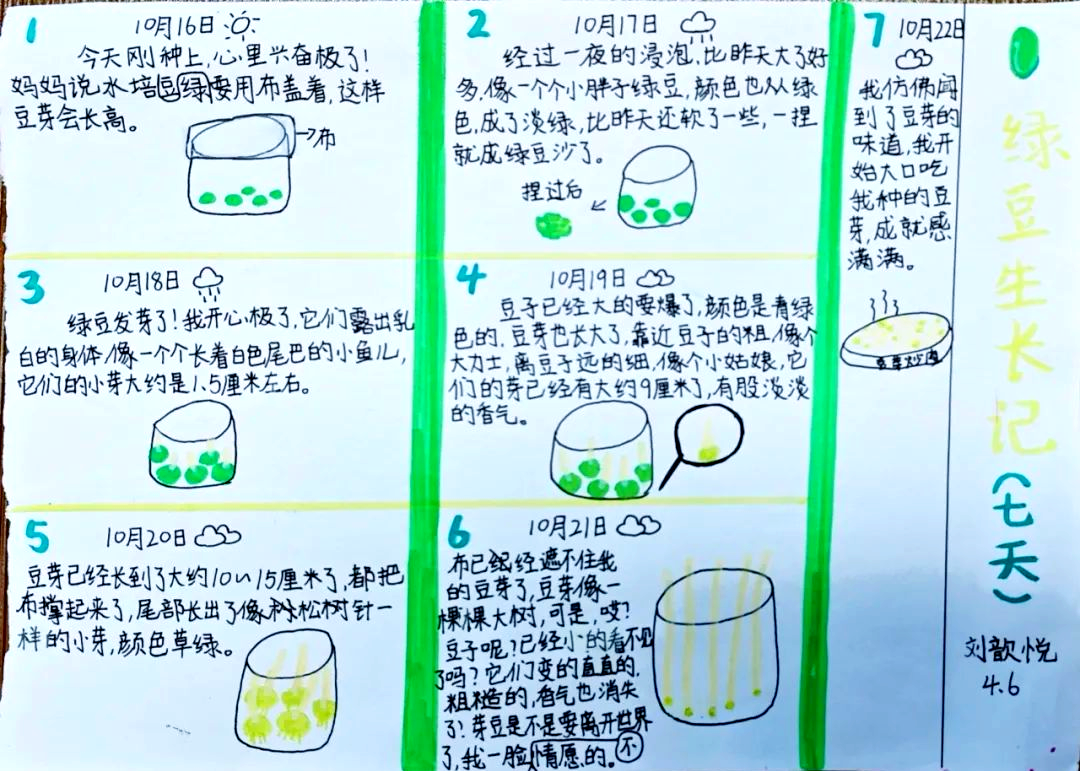 1
10月16日
今天刚种上，心里兴奋极了！
妈妈说水培绿豆要用布盖着，这样
豆芽会长高。
布
2
10月17日
经过一夜的浸泡，比昨天大了好
多，像一个个小胖子绿豆，颜色也从绿
色，成了淡绿，比昨天还软了一些，一捏
就成绿豆沙了。
捏过后
3
10月18日
绿豆发芽了！我开心极了，它们露出乳
白的身体，像一个个长着白色尾巴的小鱼儿，
它们的小芽大约是1.5厘米左右。
4
10月19日
豆子已经大的要爆了，颜色是青绿
色的，豆芽也长大了，靠近豆子的粗，像个
大力士，离豆子远的细，像个小姑娘，它
们的芽已经有大约9厘米了，有股淡淡
的香气。
5
10月20日
豆芽已经长到了大约10~15厘米了，都把
布撑起来了，尾部长出了像松树针一
样的小芽，颜色草绿。
6
10月21日
布已经遮不住我
的豆芽了，豆芽像一
棵棵大树，可是，哎？
豆子呢？已经小的看不见
了吗？它们变的直直的，
粗糙的，香气也消失
了！芽豆是不是要离开世界
了，我一脸不情愿的。
7
10月22日
我仿佛闻
到了豆芽的
味道，我开
始大口吃
我种的豆
芽，成就感
满满。
绿豆生长记（七天）
刘歆悦
4.6